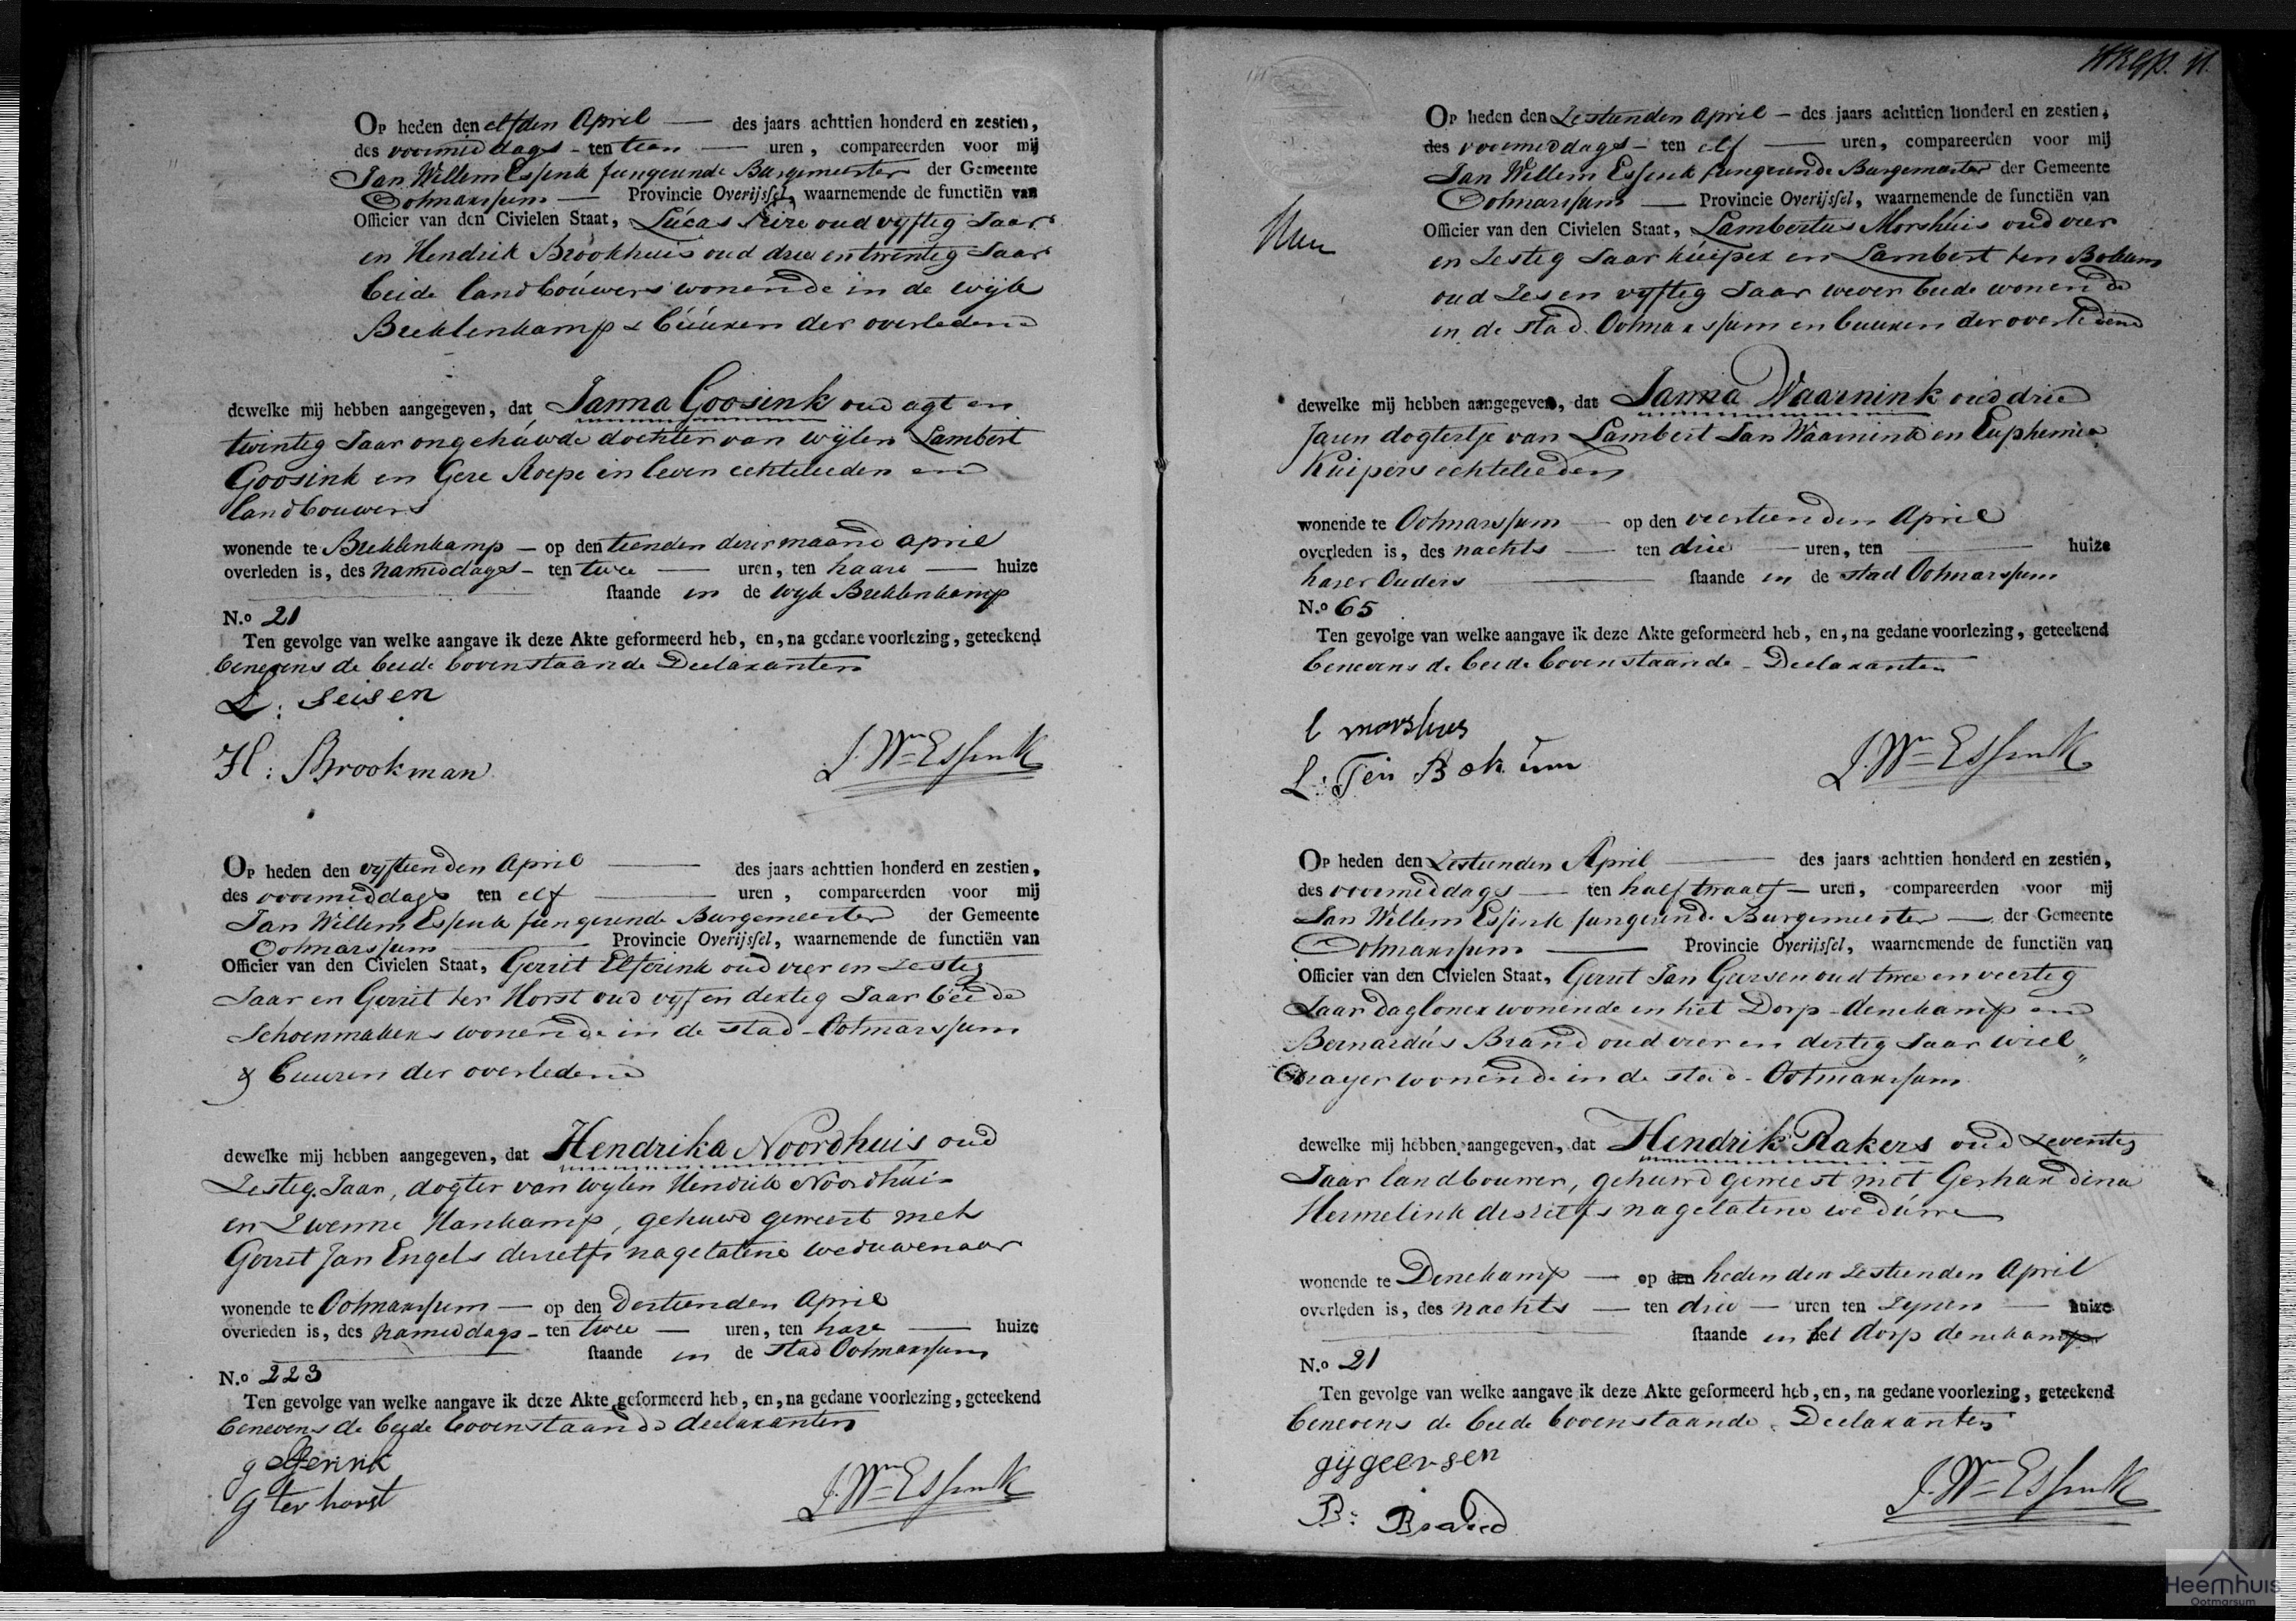 Op heden den elfden April des jaars achttien honderd en zestien,
des voormiddags ten tien uren, compareerden voor mij
Jan Willem Essink fungerende Burgemeester der Gemeente
Ootmarssum Provincie Overijssel, waarnemende de functiën van
Officier van den Civielen Staat, Lúcas oud vyftig Jaar
en Hendrik Brookhuis oud drie en twintig Jaar
beide landboúwers wonende in de wijk
Brecklenkamp & búúren der overledene
dewelke mij hebben aangegeven, dat Janna Goosink oud agt en
twintig Jaar ongehúwde dochter van wijlen Lambert
Goosink en Gere Roepe in leven echtelieden en
landbouwers
wonende te Brecklenkamp op den tienden dezer maand april
overleden is, des namiddags ten twee uren, ten haare huize
staande in de wyk Brecklenkamp
N.o 21
Ten gevolge van welke aangave ik deze Akte geformeerd heb, en, na gedane voorlezing, geteekend
benevens de beide bovenstaande Declaranten
L: Seisen
H: Brookman
J. Wm Essink
Op heden den vyftienden April des jaars achttien honderd en zestien,
des voormiddags ten elf uren, compareerden voor mij
Jan Willem Essink fungerende Burgemeester der Gemeente
Ootmarssum Provincie Overijssel, waarnemende de functiën van
Officier van den Civielen Staat, Gerrit Elferink oud vier en zestig
Jaar en Gerrit ter Horst oud vyf en dertig Jaar beide
Schoenmakers wonende in de stad Ootmarssum
& buuren der overledene
dewelke mij hebben aangegeven, dat Hendrika Noordhuis oud
Zestig Jaar, dogter van wylen Hendrik Noordhúis
en Zwenne Hankamp, gehuwd geweest met
Gerrit Jan Engels deszelfs nagelatene weduwenaar
wonende te Ootmarssum op den dertienden April
overleden is, des namiddags ten twee uren, ten hare huize
staande in de stad Ootmarssum
N.o 223
Ten gevolge van welke aangave ik deze Akte geformeerd heb, en, na gedane voorlezing, geteekend
benevens de beide bovenstaande declaranten
g Elferink
G ter horst
J. Wm Essink
11.
Op heden den Zestienden April des jaars achttien honderd en zestien,
des voormiddags ten elf uren, compareerden voor mij
Jan Willem Essink fungerende Burgemeester der Gemeente
Ootmarssum Provincie Overijssel, waarnemende de functiën van
Officier van den Civielen Staat, Lambertus Morshuis oud vier
en Zestig Jaar kúiper en Lambert ten Bokum
oud Zes en vyftig Jaar wever beide wonende
in de stad Ootmarssum en buuren der overledene
dewelke mij hebben aangegeven, dat Janna Waarnink oud drie
Jaren dogtertje van Lambert Jan Waarnink en Euphemia
Kuipers echtelieden
wonende te Ootmarssum op den veertienden April
overleden is, des nachts ten drie uren, ten huize
harer Ouders staande in de stad Ootmarssum
N.o 65
Ten gevolge van welke aangave ik deze Akte geformeerd heb, en, na gedane voorlezing, geteekend
benevens de beide bovenstaande Declaranten
l morshuis
L: Ten Bokum
J. Wm Essink
Op heden den Zestienden April des jaars achttien honderd en zestien,
des voormiddags ten half twaalf uren, compareerden voor mij
Jan Willem Essink fungerende Burgemeester der Gemeente
Ootmarssum Provincie Overijssel, waarnemende de functiën van
Officier van den Civielen Staat, Gerrit Jan Geersen oud twee en veertig
Jaar dagloner wonende in het Dorp denekamp en
Bernardús Brand oud vier en dertig Jaar wiel„
drayer wonende in de stad Ootmarssum
dewelke mij hebben aangegeven, dat Hendrik Rakers oud Zeventig
Jaar landbouwer, gehuwd geweest met Gerhardina
Hermelink deszelfs nagelatene wedúwe
wonende te Denekamp op den heden den Zestienden April
overleden is, des nachts ten drie uren ten zynen huize
staande in het dorp denekamp
N.o 21
Ten gevolge van welke aangave ik deze Akte geformeerd heb, en, na gedane voorlezing, geteekend
benevens de beide bovenstaande Declaranten
gijgeersen
B: Brand
J. Wm Essink
Heemhuis
Ootmarsum